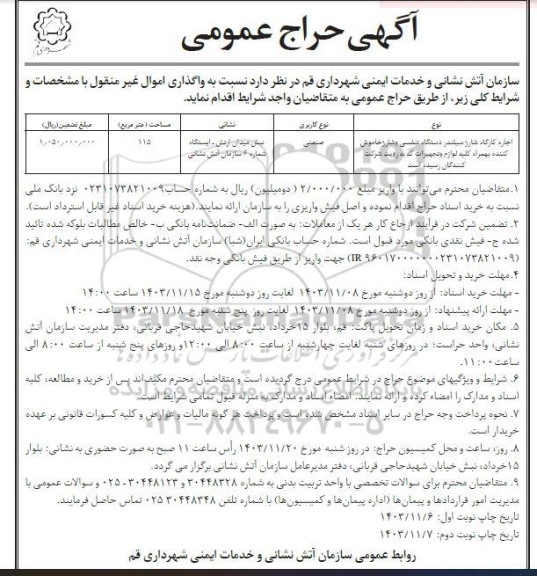 آگهی حراج عمومی
سازمان آتش نشانی و خدمات ایمنی شهرداری قم در نظر دارد نسبت به واگذاری اموال غیر منقول با مشخصات و
شرایط کلی زیر، از طریق حراج عمومی به متقاضیان واجد شرایط اقدام نماید.
نوع نوع کاربری نشانی مساحت (متر مربع) مبلغ تضمین(ریال)
اجاره کارگاه شارژ سیلندر دستگاه تنفسی و شارژ خاموش صنعتی نبش میدان ارتش ـ ایستگاه ۱۱۵ ۱,۰۵۰,۰۰۰,۰۰۰
کننده بهمراه کلیه لوازم وتجهیزات که به رویت شرکت شماره ۶ سازمان آتش نشانی
کنندگان رسیده است
۱. متقاضیان محترم می‌توانند با واریز مبلغ ۲/۰۰۰/۰۰۰ (دومیلیون) ریال به شماره حساب ۰۲۳۱۰۷۳۸۲۱۰۰۹ نزد بانک ملی
نسبت به خرید اسناد حراج اقدام نموده و اصل فیش واریزی را به سازمان ارائه نمایند. (هزینه خرید اسناد غیر قابل استرداد است).
۲. تضمین شرکت در فرآیند ارجاع کار هر یک از معاملات: به صورت الف- ضمانت‌نامه بانکی ب- خالص مطالبات بلوکه شده تائید
شده ج- فیش نقدی بانکی مورد قبول است. شماره حساب بانکی ایران(شبا) سازمان آتش نشانی و خدمات ایمنی شهرداری قم:
جهت واریز از طریق فیش بانکی وجه نقد.
۴. مهلت خرید و تحویل اسناد:
- مهلت خرید اسناد: از روز دوشنبه مورخ ۱۴۰۳/۱۱/۰۸ لغایت روز دوشنبه مورخ ۱۴۰۳/۱۱/۱۵ ساعت ۱۴:۰۰
- مهلت ارائه پیشنهاد: از روز دوشنبه مورخ ۱۴۰۳/۱۱/۰۸ لغایت روز پنج شنبه مورخ ۱۴۰۳/۱۱/۱۸ ساعت ۱۴:۰۰
۵. مکان خرید اسناد و زمان تحویل پاکت: قم، بلوار ۱۵خرداد، نبش خیابان شهیدحاجی قربانی، دفتر مدیریت سازمان آتش
نشانی، واحد حراست؛ در روزهای شنبه لغایت چهارشنبه از ساعت ۸:۰۰ الی ۱۲:۰۰و روزهای پنج شنبه از ساعت ۸:۰۰ الی
ساعت۱۱:۰۰.
۶. شرایط و ویژگیهای موضوع حراج در شرایط عمومی درج گردیده است و متقاضیان محترم مکلف‌اند پس از خرید و مطالعه، کلیه
اسناد و مدارک را امضاء کرده و ارائه نمایند. امضاء اسناد و مدارک به منزله قبول تمامی شرایط است.
۷. نحوه پرداخت وجه حراج در سایر اسناد مشخص شده است و پرداخت هر گونه مالیات و عوارض و کلیه کسورات قانونی بر عهده
خریدار است.
۸. روز، ساعت و محل کمیسیون حراج: در روز شنبه مورخ ۱۴۰۳/۱۱/۲۰ رأس ساعت ۱۱ صبح به صورت حضوری به نشانی: بلوار
۱۵خرداد، نبش خیابان شهیدحاجی قربانی، دفتر مدیرعامل سازمان آتش نشانی برگزار می گردد.
۹. متقاضیان محترم برای سوالات تخصصی با واحد تربیت بدنی به شماره ۳۰۴۴۸۳۲۸ و ۳۰۴۴۸۱۲۳-۰۲۵ و سوالات عمومی با
مدیریت امور قراردادها و پیمان‌ها (اداره پیمان‌ها و کمیسیون‌ها) با شماره تلفن ۳۰۴۴۸۳۴۸ ۰۲۵ تماس حاصل فرمایند.
تاریخ چاپ نوبت اول: ۱۴۰۳/۱۱/۶
تاریخ چاپ نوبت دوم: ۱۴۰۳/۱۱/۷
روابط عمومی سازمان آتش نشانی و خدمات ایمنی شهرداری قم
۰۲۱-۸۸۳۴۹۶۷۰-۵